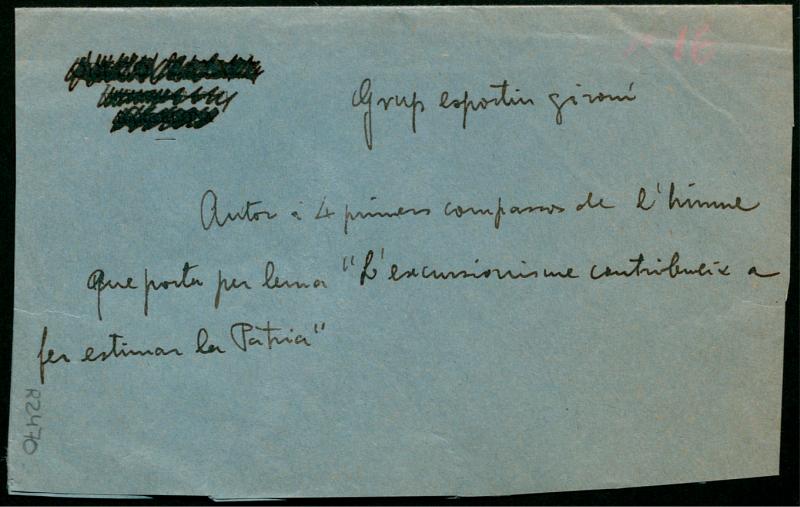 16
Grup esportiu gironí
Autor i 4 primers compassos de l'himne
que porta per lema "L'excursionisme contribueix a
fer estimar la Pàtria"
R2470